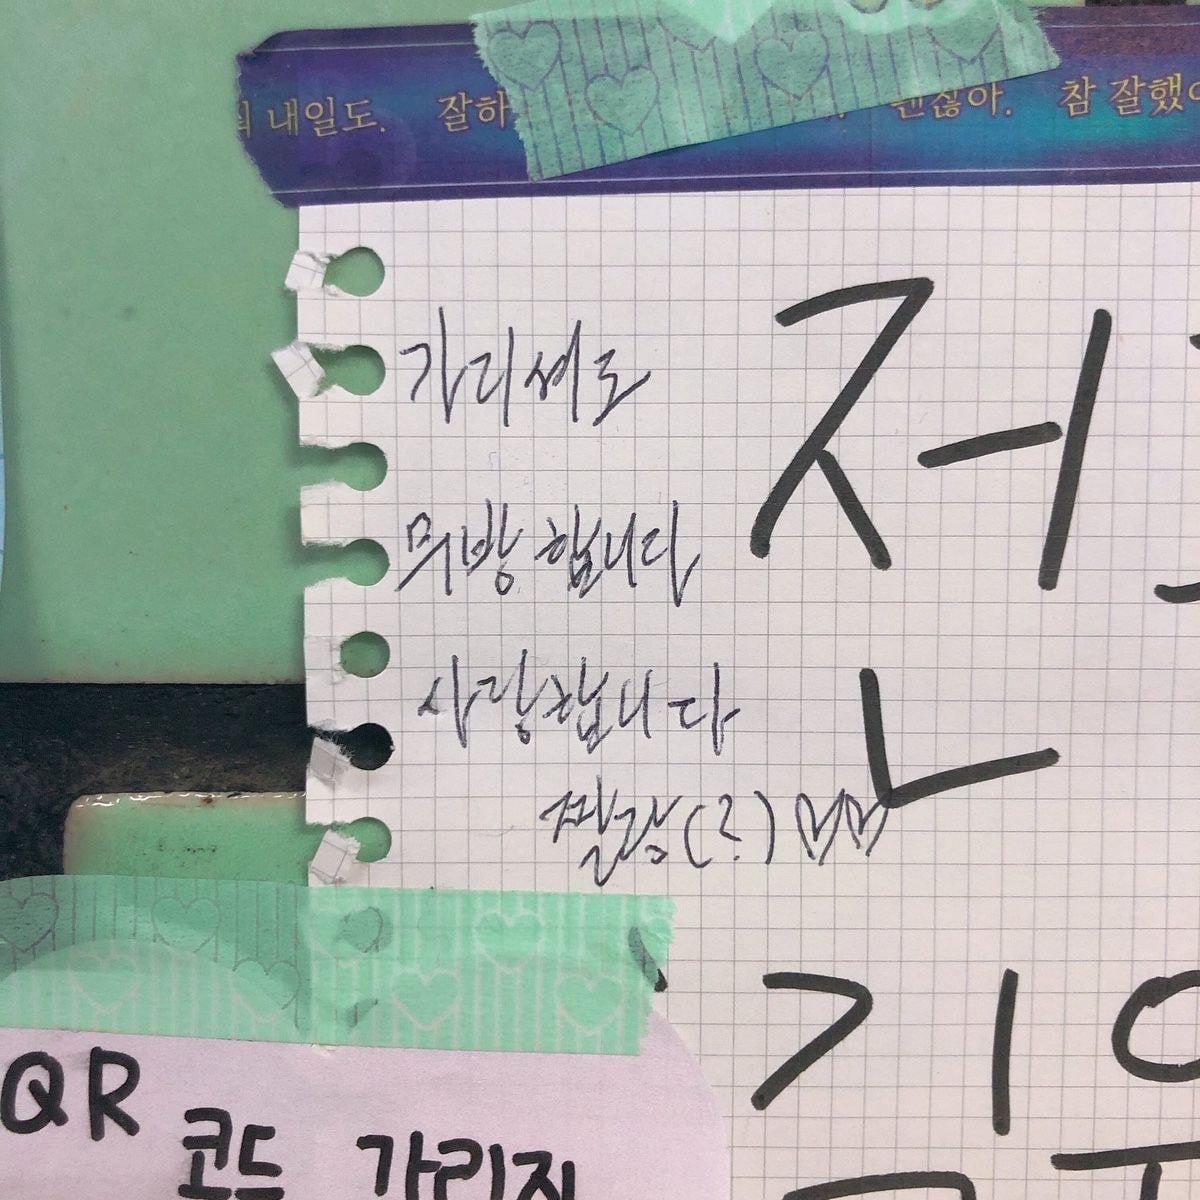 내일도. 잘하 괜찮아. 참 잘했
가리셔도
무방합니다
사랑합니다
찔긍(?)♡♡
전
기
QR
코드 가리지